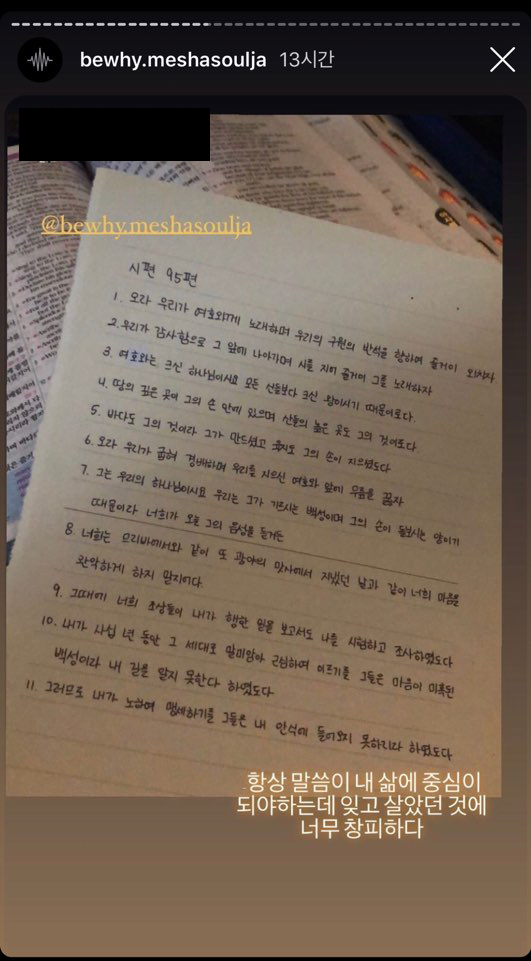 bewhy.meshasoulja 13시간
@bewhy.meshasoulja
시편 95편
1. 오라 우리가 여호와께 노래하며 우리의 구원의 반석을 향하여 즐거이 외치자
2. 우리가 감사함으로 그 앞에 나아가며 시를 지어 즐거이 그를 노래하자
3. 여호와는 크신 하나님이시요 모든 신들보다 크신 왕이시기 때문이로다
4. 땅의 깊은 곳이 그의 손 안에 있으며 산들의 높은 곳도 그의 것이로다
5. 바다도 그의 것이라 그가 만드셨고 육지도 그의 손이 지으셨도다
6. 오라 우리가 굽혀 경배하며 우리를 지으신 여호와 앞에 무릎을 꿇자
7. 그는 우리의 하나님이시요 우리는 그가 기르시는 백성이며 그의 손이 돌보시는 양이기
때문이라 너희가 오늘 그의 음성을 듣거든
8. 너희는 므리바에서와 같이 또 광야의 맛사에서 지냈던 날과 같이 너희 마음을
완악하게 하지 말지어다.
9. 그때에 너희 조상들이 내가 행한 일을 보고서도 나를 시험하고 조사하였도다
10. 내가 사십 년 동안 그 세대로 말미암아 근심하여 이르기를 그들은 마음이 미혹된
백성이라 내 길을 알지 못한다 하였도다
11. 그러므로 내가 노하여 맹세하기를 그들은 내 안식에 들어오지 못하리라 하였도다
항상 말씀이 내 삶에 중심이
되야하는데 잊고 살았던 것에
너무 창피하다